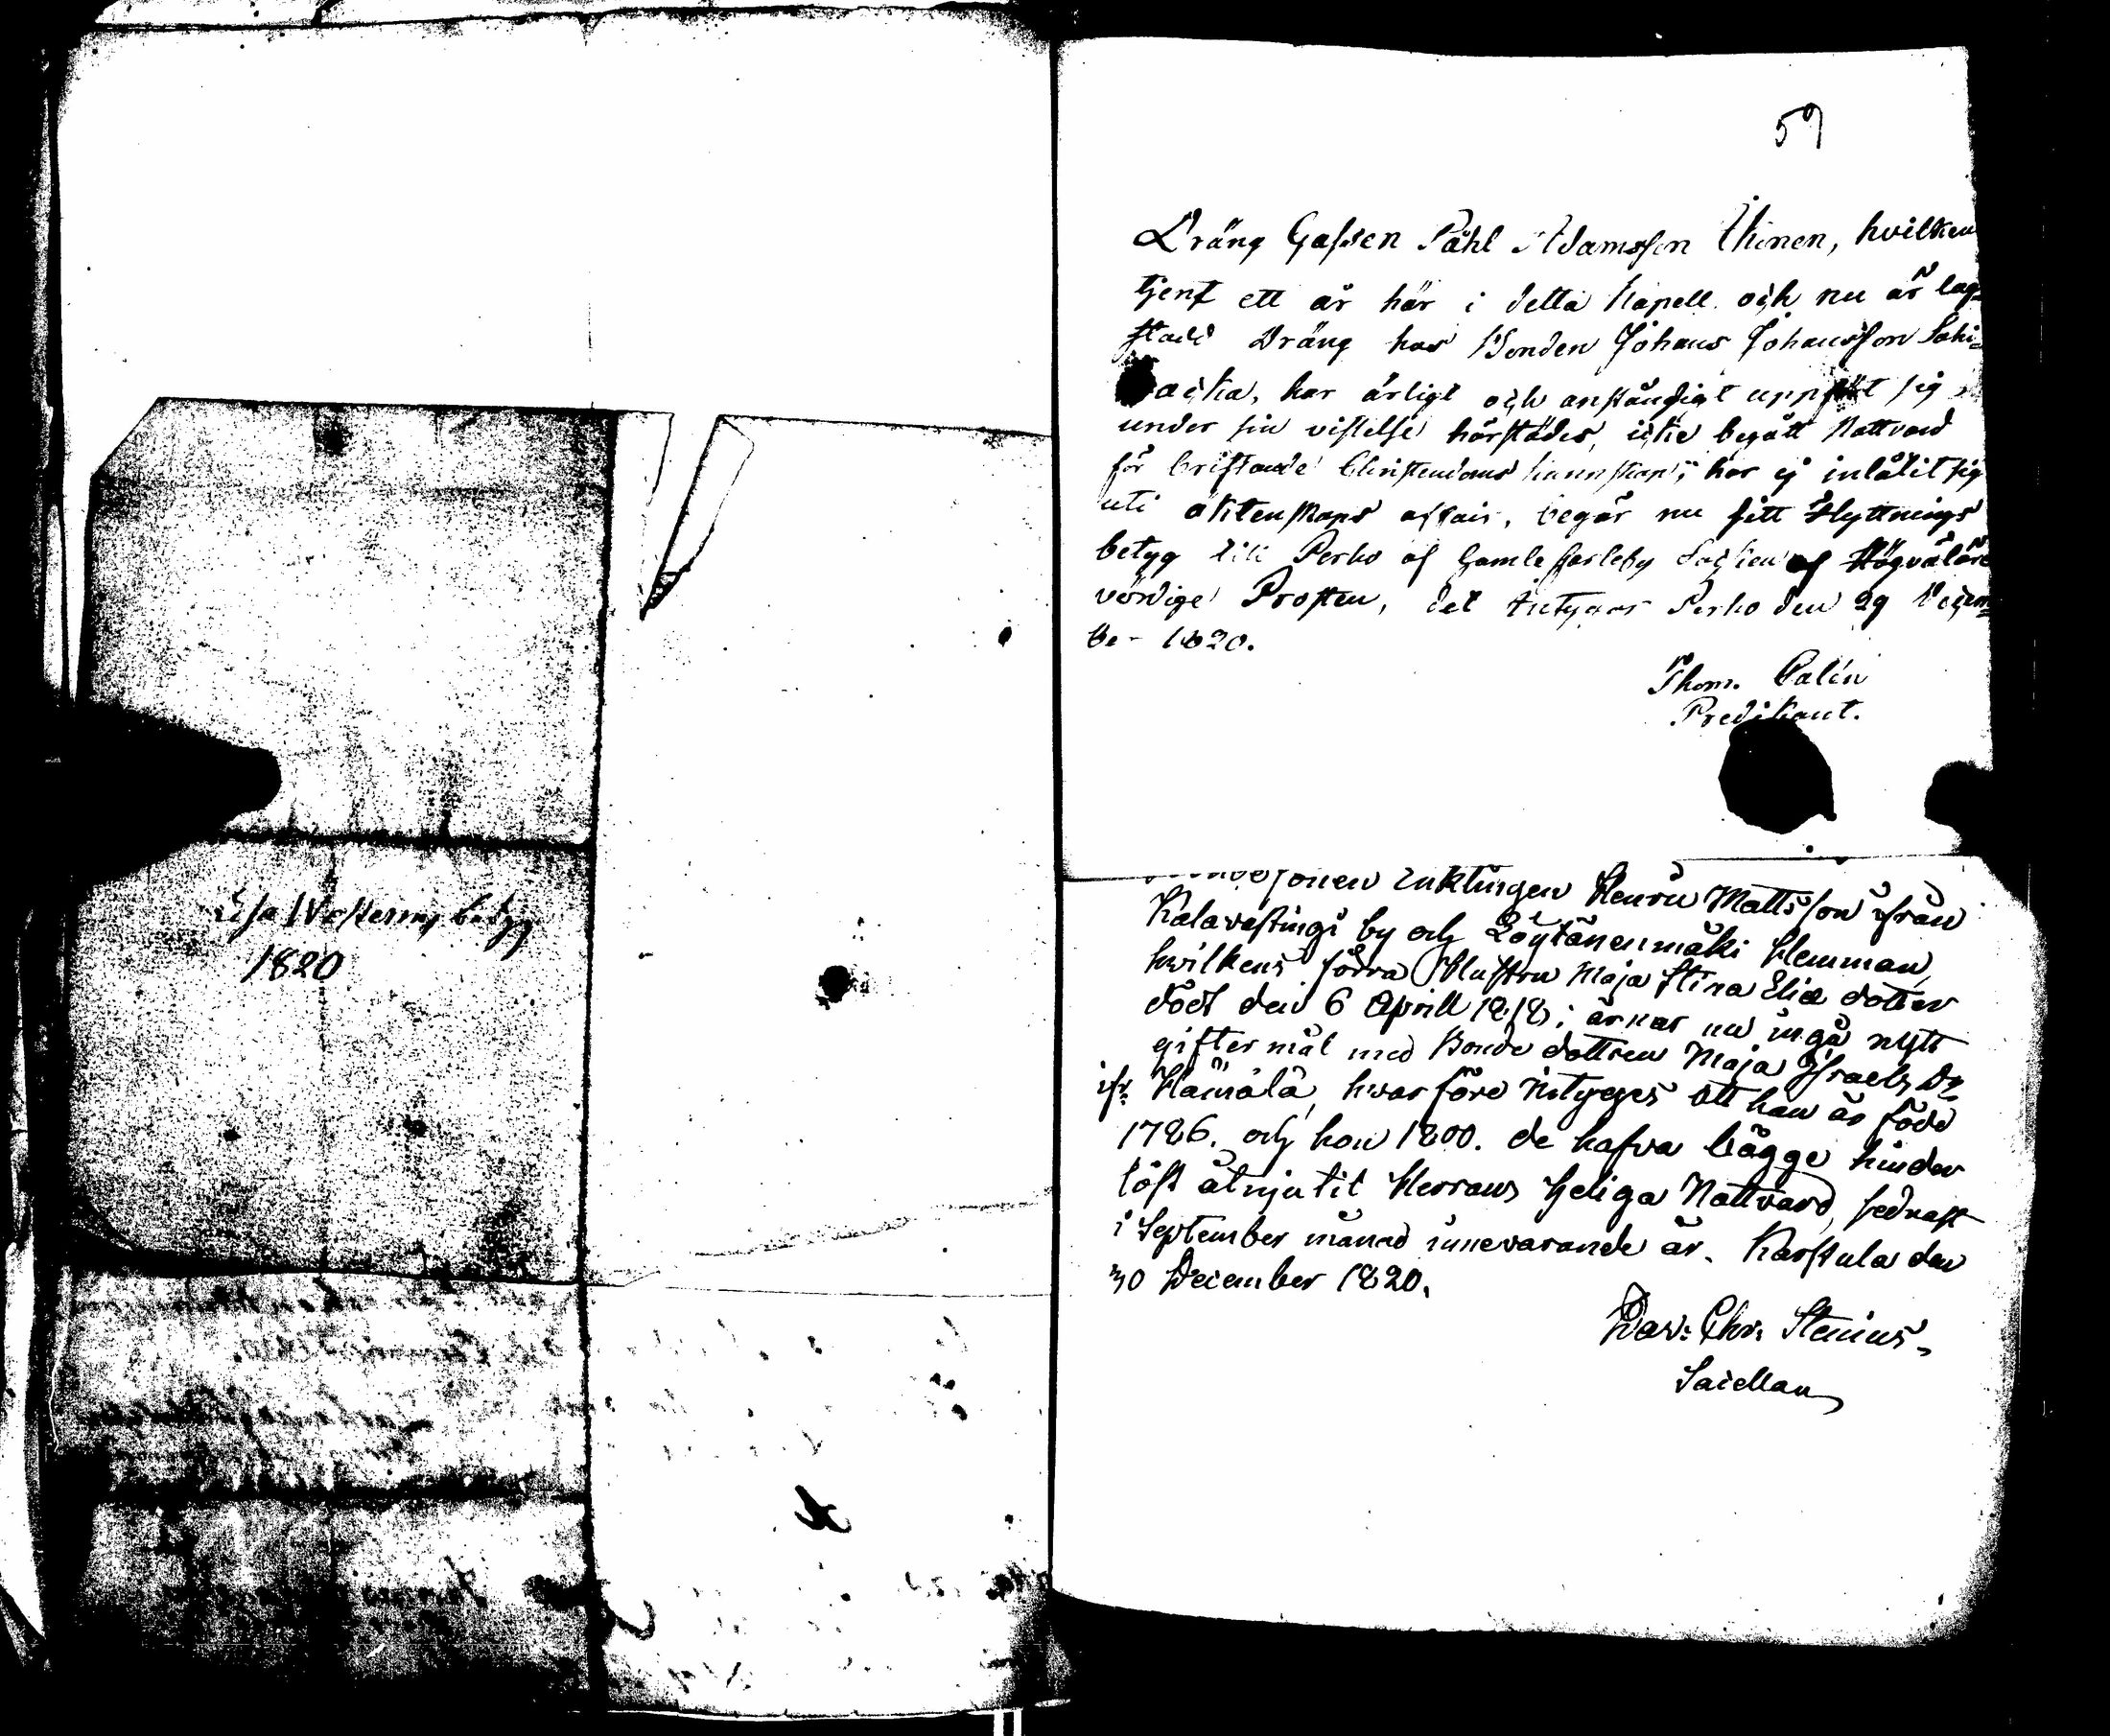 Lisa Westerins betyg
1820
59
Dräng Gossen Påhl Adamsson Ihinen, hvilken
tjent ett år här i detta Kapell och nu är lag-
stadd Dräng hos Bonden Johans Johansson Saki-
backa, har ärligt och anständigt uppfört sig
under sin vistelse härstädes, icke begått Nattvard
för bristande Christendoms kunnskap; har ej inlåtit sig
uti äktenskaps affair, begär nu sitt Flyttnings
betyg till Perho af Gamle Carleby Socken af Högväläre
vördige Prosten, det intygar Perho den 29 Decem-
ber 1820.
Thom. Calin
Predikant.
Enktingen Henric Mattsson ifrån
Kalavestingi by och Löytänenmäki Hemman,
hvilkens förra Hustru Maja Stina Eliæ dotter
dödt den 6 Aprill 1818; ärnar nu ingå nytt
giftermål med Bonde dottren Maja Israels Dr
ifr: Hämälä, hvarföre intyges att han är född
1786. och hon 1800. de hafva bägge hinder
löst åtnjutit Herrans Heliga Nattvard, sednast
i September månad innevarande år. Karstula den
30 December 1820.
Dav: Chr: Stenius,
Sacellan